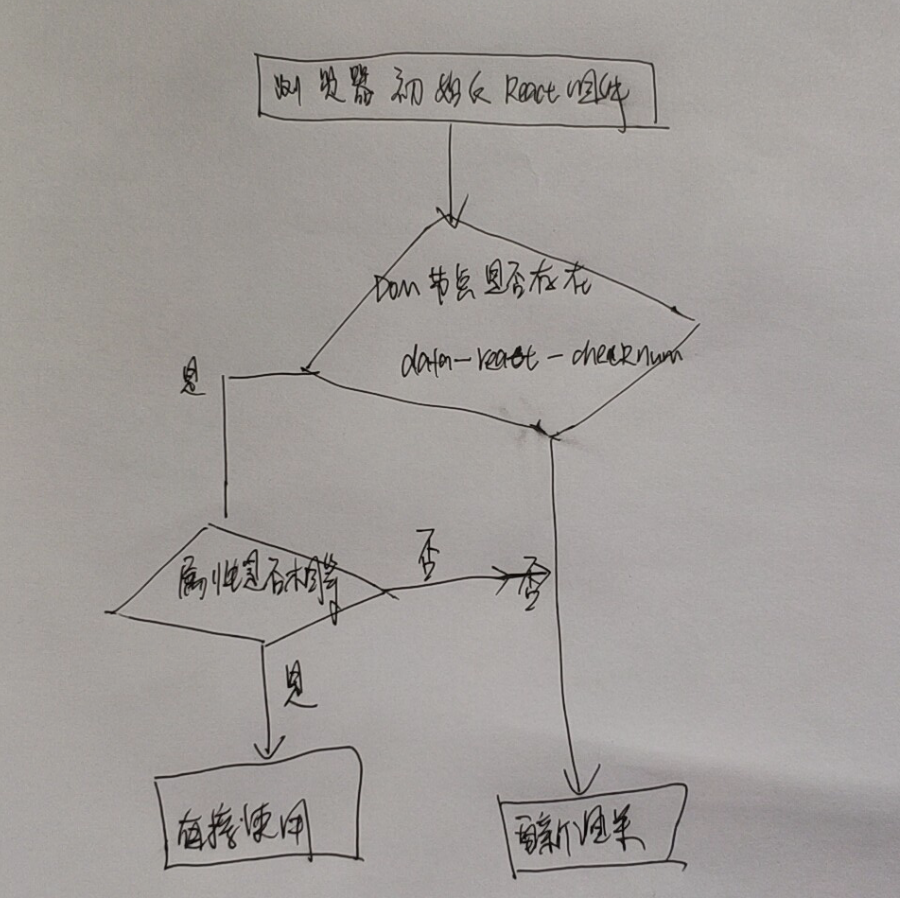 浏览器初始化React组件
DOM节点是否存在
data-react-checknum
是
属性是否相等
否
否
是
直接使用
重新渲染